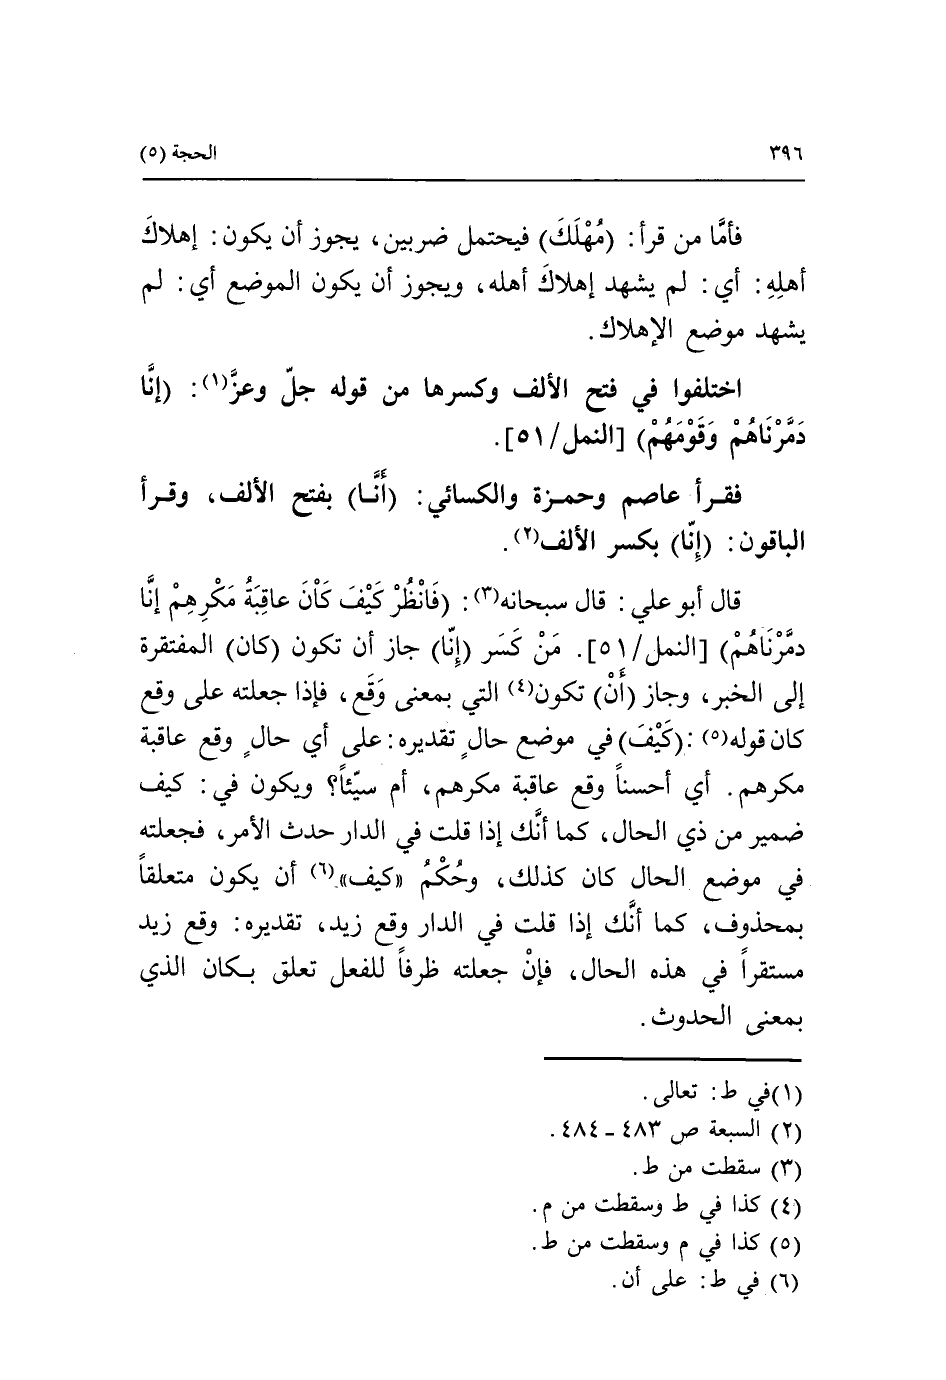 ٣٩٦ الحجة (٥)
فأمَّا من قرأ: (مُهْلَكَ) فيحتمل ضربين، يجوز أن يكون: إهلاكَ
أهلِهِ: أي: لم يشهد إهلاكَ أهله، ويجوز أن يكون الموضع أي: لم
يشهد موضع الإهلاك.
اختلفوا في فتح الألف وكسرها من قوله جلّ وعزَّ(١): (إنَّا
دَمَّرْنَاهُمْ وَقَوْمَهُمْ) [النمل/٥١].
فقرأ عاصم وحمزة والكسائي: (أَنَّا) بفتح الألف، وقرأ
الباقون: (إِنّا) بكسر الألف(٢).
قال أبو علي: قال سبحانه(٣): (فَانْظُرْ كَيْفَ كَانَ عاقِبَةُ مَكْرِهِمْ إنَّا
دمَّرْنَاهُمْ) [النمل/٥١]. مَنْ كَسَر (إِنّا) جاز أن تكون (كان) المفتقرة
إلى الخبر، وجاز (أَنْ) تكون(٤) التي بمعنى وَقَع، فإذا جعلته على وقع
كان قوله(٥) :(كَيْفَ) في موضع حالٍ تقديره: على أي حالٍ وقع عاقبة
مكرهم. أي أحسناً وقع عاقبة مكرهم، أم سيّئاً؟ ويكون في: كيف
ضمير من ذي الحال، كما أنَّك إذا قلت في الدار حدث الأمر، فجعلته
في موضع الحال كان كذلك، وحُكْمُ «كيف»(٦) أن يكون متعلقاً
بمحذوف، كما أنَّك إذا قلت في الدار وقع زيد، تقديره: وقع زيد
مستقراً في هذه الحال، فإنْ جعلته ظرفاً للفعل تعلق بكان الذي
بمعنى الحدوث.
(١)في ط: تعالى.
(٢) السبعة ص ٤٨٣ ـ ٤٨٤.
(٣) سقطت من ط.
(٤) كذا في ط وسقطت من م.
(٥) كذا في م وسقطت من ط.
(٦) في ط: على أن.